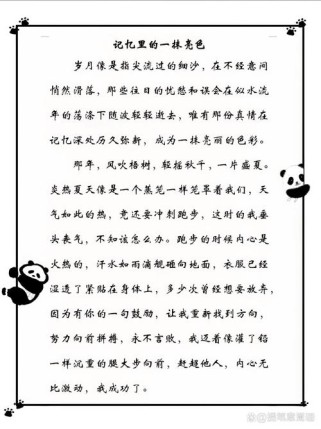 记忆里的一抹亮色
岁月像是指尖流过的细沙，在不经意间
悄然滑落，那些往日的忧愁和误会在似水流
年的荡涤下随波轻轻逝去，唯有那份真情在
记忆深处历久弥新，成为一抹亮丽的色彩。
那年，风吹梧树，轻摇秋千，一片盛夏。
炎热夏天像是一个蒸笼一样笼罩着我们，天
气如此的热，竟还要冲刺跑步，这时的我垂
头丧气，不知该怎么办。跑步的时候内心是
火热的，汗水如雨滴般砸向地面，衣服已经
湿透了紧贴在身体上，多少次曾经想要放弃，
因为有你的一句鼓励，让我重新找到方向，
努力向前拼搏，永不言败，我迈着像灌了铅
一样沉重的腿大步向前，赶超他人，内心无
比激动，我成功了。